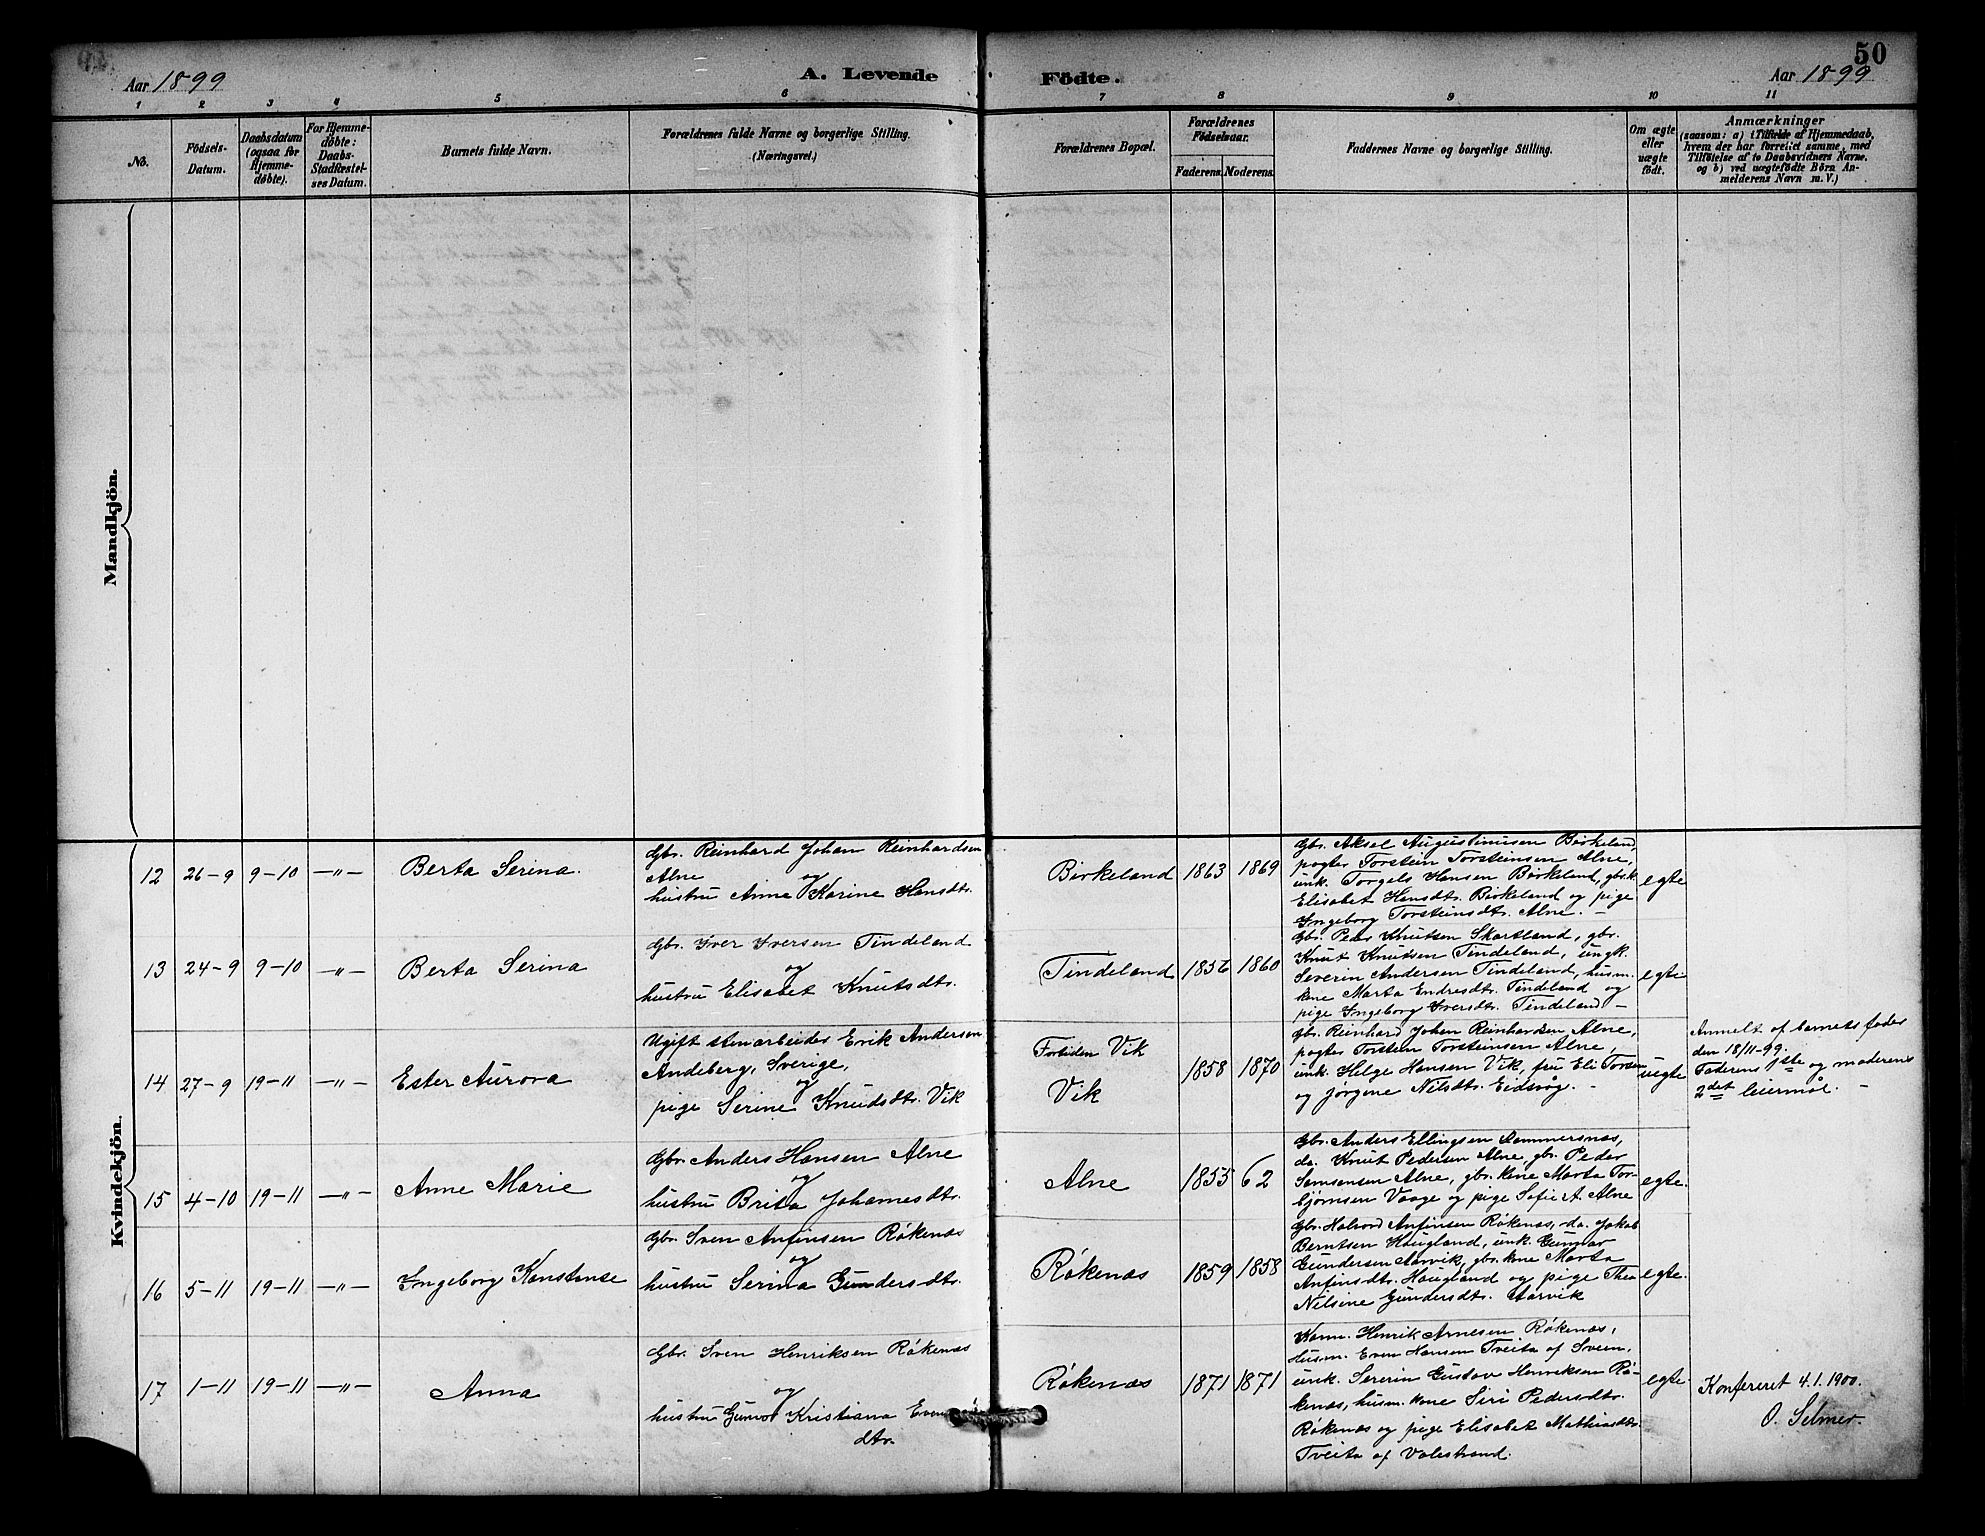 50
Aar 1899
A. Levende Födte.
Aar 1899
1 2 3 4 5 6 7 8 9 10 11
No.
Födsels-Datum.
Daabsdatum (ogsaa for Hjemme-døbte).
For Hjemme-døbte: Daabs-Stadfæstel-ses Datum.
Barnets fulde Navn.
Forældrenes fulde Navne og borgerlige Stilling.
(Næringsvei.)
Forældrenes Bopæl.
Forældrenes Födselsaar.
Faderens. Moderens.
Faddernes Navne og borgerlige Stilling.
Om ægte eller uægte födt.
Anmærkninger
(saasom: a) i Tilfælde af Hjemmedaab,
hvem der har forrettet samme, med
Tilföielse af to Daabsvidners Navne,
og b) ved uægtefödte Börn An-
melderens Navn m. V.)
Mandkjön.
Kvindekjön.
12 26-9 9-10 —"— Berta Serina.
Gbr. Reinhard Johan Reinhardsen
Alne og
hustru Anne Karine Hansdtr.
Birkeland 1863 1869
Gbr. Aksel Augustinusen Birkeland,
pagter Torstein Torsteinsen Alne,
unk. Torgels Hansen Birkeland, gbr.k.
Elisabet Hansdtr. Birkeland og pige
Ingeborg Torsteinsdtr. Alne. —
egte
13 24-9 9-10 —"— Berta Serina
Gbr. Iver Iversen Tindeland
og
hustru Elisabet Knutsdtr.
Tindeland 1856 1860
Gbr. Peder Knutsen Skartland, gbr.
Knut Knutsen Tindeland, ungk.
Severin Andersen Tindeland, husm.
kone Marta Endresdtr. Tindeland og
pige Ingeborg Iversdtr. Tindeland —
egte
14 27-9 19-11 —"— Ester Aurora
Ugift stenarbeider Erik Andersen
Andeberg, Sverige,
og
pige Serine Knudsdtr. Vik
Fortiden Vik
Vik
1858 1870
Gbr. Reinhard Johan Reinhardsen Alne,
pagter Torstein Torsteinsen Alne,
unk. Helge Hansen Vik, fru Eli Torsen
og Jørgine Nilsdtr. Eidsvåg. —
uegte
Anmelt af barnets fader
den 18/11-99.
Faderens 1ste og moderens
2det leiermål. —
15 4-10 19-11 —"— Anne Marie
Gbr. Anders Hansen Alne
og
hustru Brita Johannesdtr.
Alne 1855 62
Gbr. Anders Ellingsen Rommersnæs,
do. Knut Pedersen Alne, gbr. Peder
Samsonsen Alne, gbr. kone Marta Tor-
bjørnsen Vaage og pige Sofie A. Alne
egte.
16 5-11 19-11 —"— Ingeborg Konstanse
Gbr. Sven Anfinsen Røkenæs
og
hustru Serina Gundersdtr.
Røkenæs 1859 1858
Gbr. Halvord Anfinsen Røkenæs, do. Jakob
Berntsen Haugland, unk. Gunnar
Gundersen Aarvik, gbr. kone Marta
Anfinsdtr. Haugland og pige Thea
Nilsine Gundersdtr. Aarvik
egte.
17 1-11 19-11 —"— Anna
Gbr. Sven Henriksen Røkenæs
og
hustru Gunvor Kristiana Evens-
dtr.
Røkenæs 1871 1871
Kaarm. Henrik Arnesen Røkenæs,
Husm. Even Hansen Tveita af Sveen,
unk. Severin Gustav Henriksen Rø-
kenæs, husm. kone Siri Pedersdtr.
Røkenæs og pige Elisabet Mathiasdtr.
Tveita af Valestrand.
egte.
Konfereret 4.1.1900.
O. Selmer.